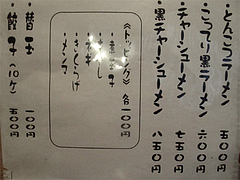 ・とんこつラーメン 五〇〇円
・こってり黒ラーメン 六〇〇円
・チャーシューメン 七五〇円
・黒チャーシューメン 八五〇円
《トッピング》各一〇〇円
・のり
・ねぎ
・きくらげ
・メンマ
・替玉 一〇〇円
・餃子(10ケ) 五〇〇円